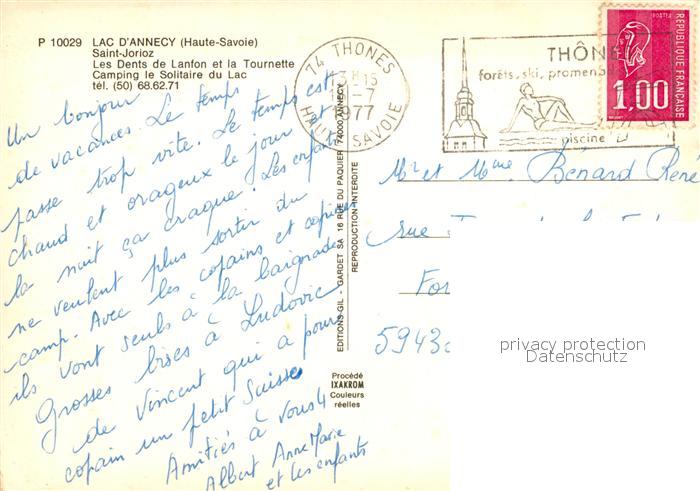 P 10029 LAC D'ANNECY (Haute-Savoie)
Saint-Jorioz
Les Dents de Lanfon et la Tournette
Camping le Solitaire du Lac
tél. (50) 68.62.71
Un bonjour
de vacances. Le temps
passe trop vite. Le temps est
chaud et orageux le jour et
la nuit ça craque. Les enfants
ne veulent plus sortir du
camp. Avec les copains et copines
ils vont seuls à la baignade
Grosses bises à Ludovic
de Vincent qui a pour
copain un petit Suisse
Amitiés à vous 4
Albert Anne Marie
et les enfants
74 THONES
13H15
-7
1977
HAUTE SAVOIE
THÔNE
forêts, ski, promen
piscine
POSTES
RÉPUBLIQUE FRANÇAISE
1,00
EDITIONS GIL - GARDET SA 16 RUE DU PAQUIER 74000 ANNECY
REPRODUCTION INTERDITE
Procédé
IXAKROM
Couleurs
réelles
Mr et Mme Bénard René
rue
For
5943
privacy protection
Datenschutz